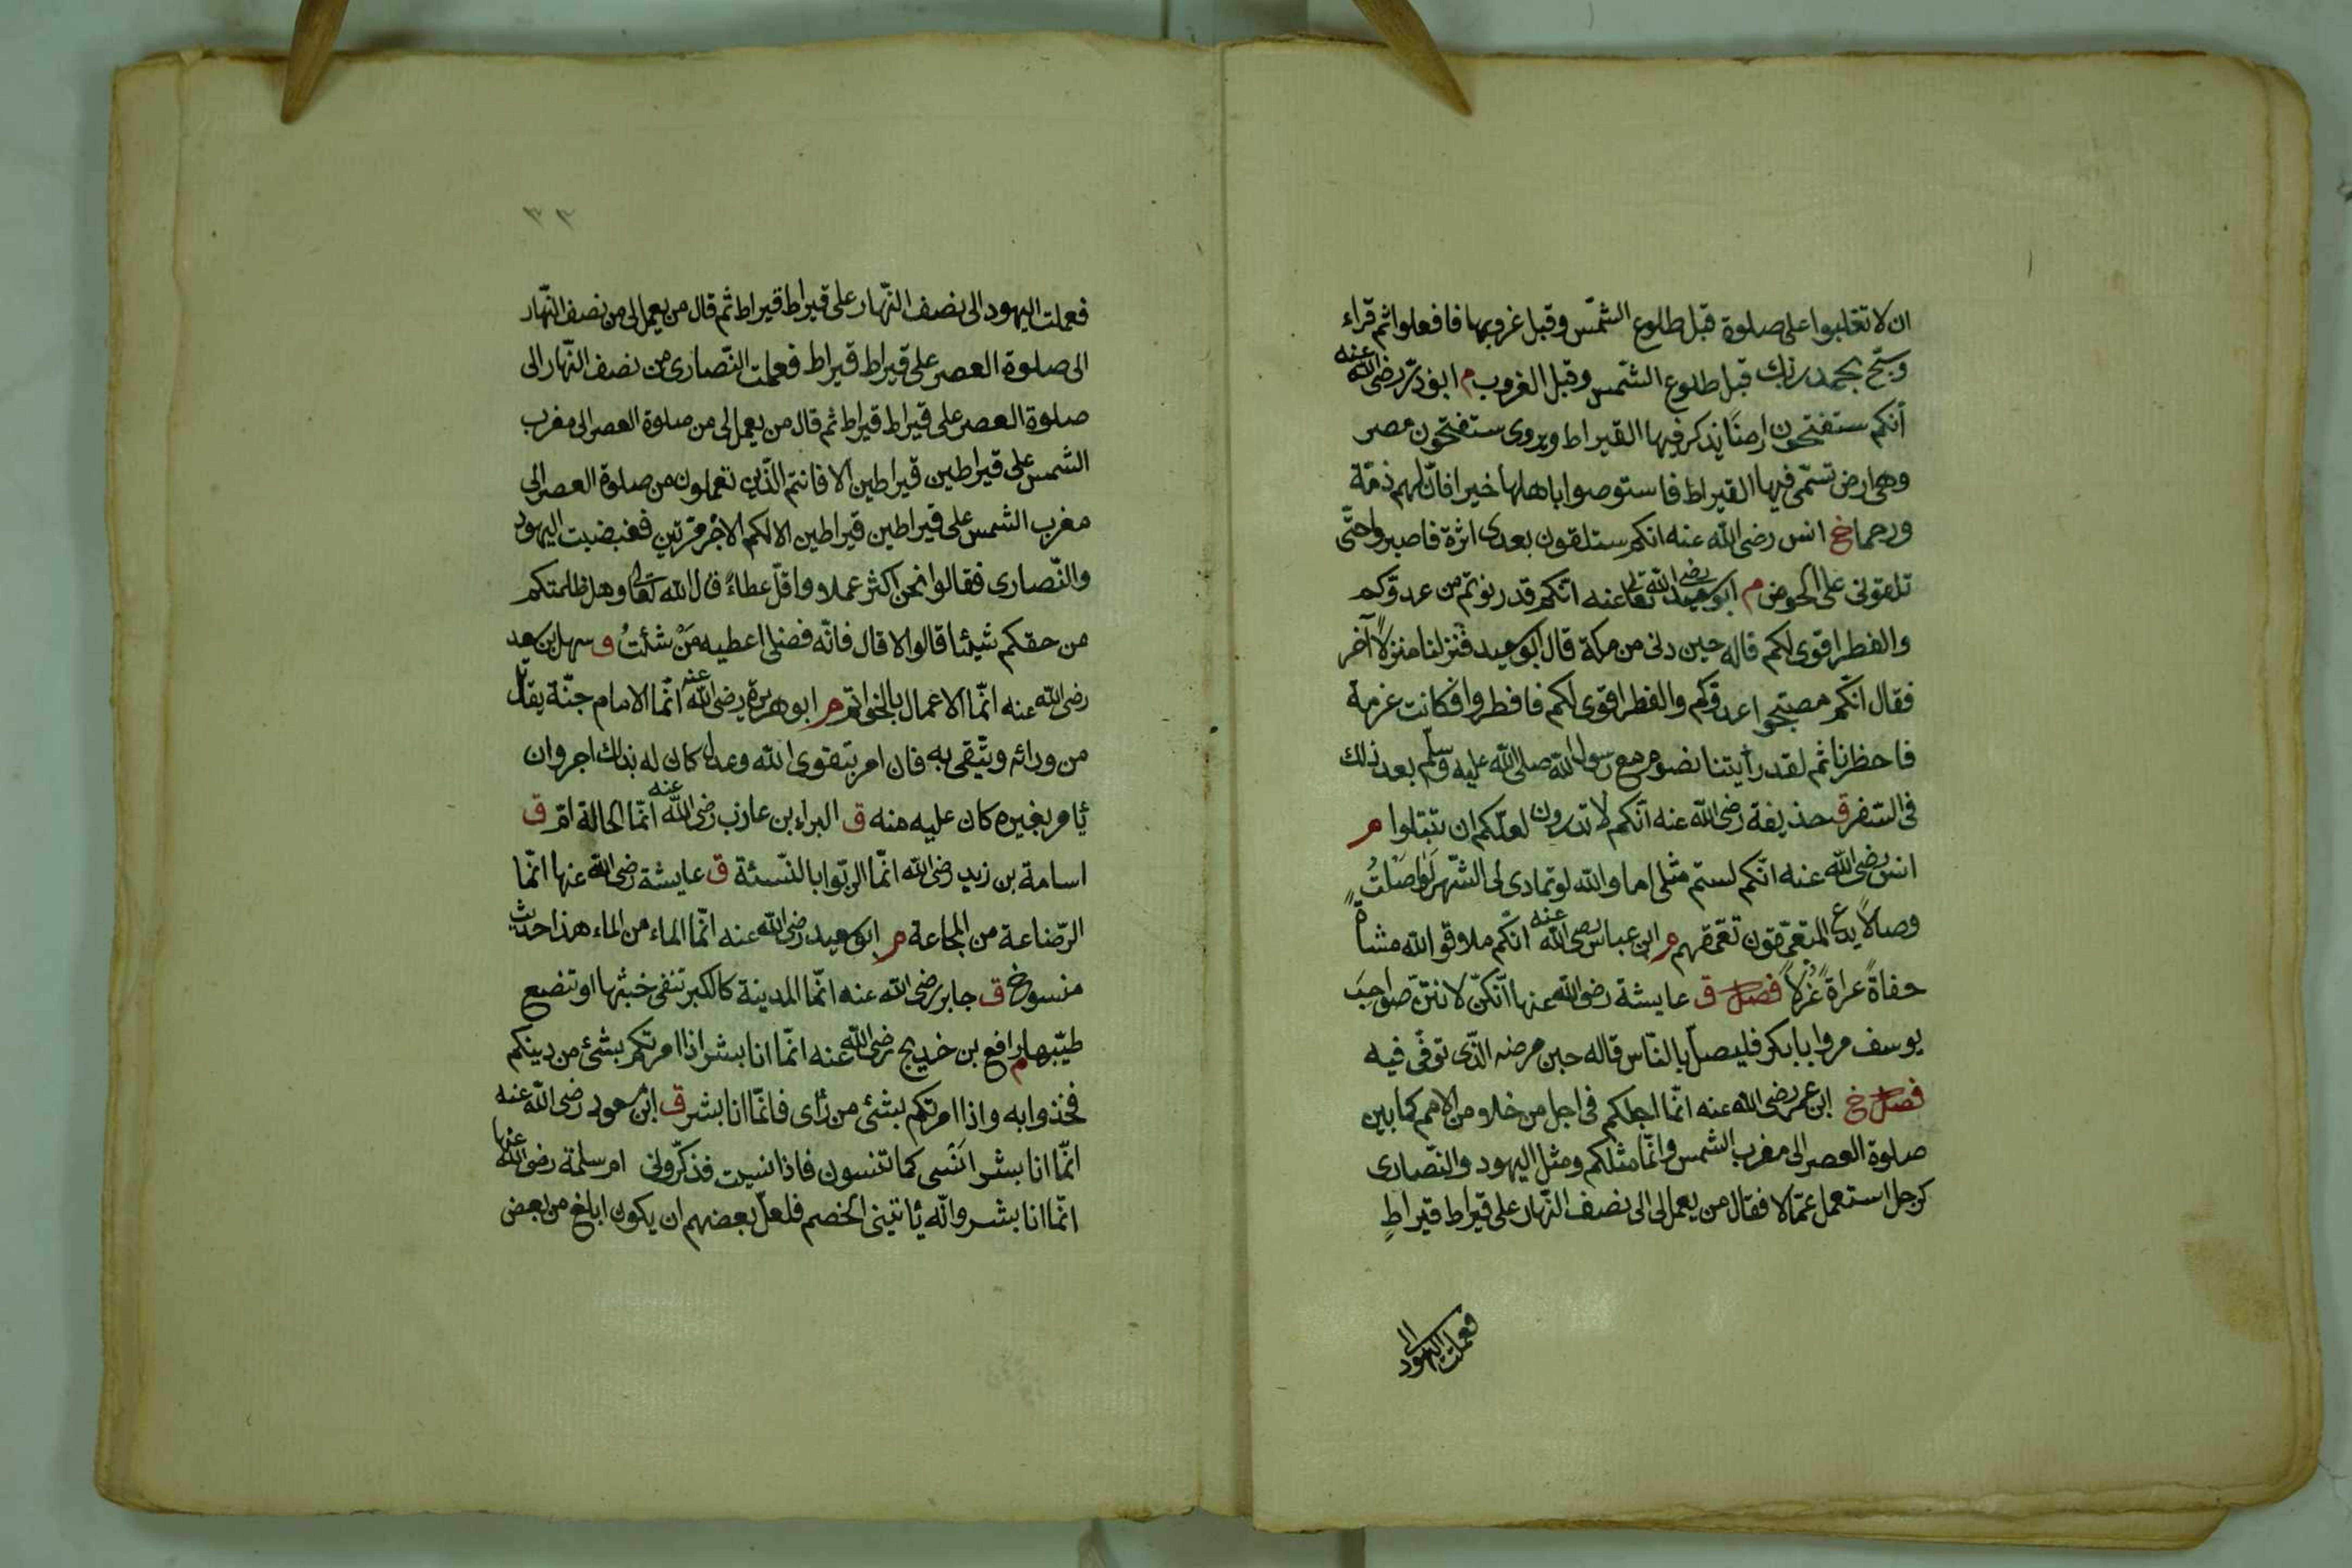 ان لا تغلبوا على صلوة قبل طلوع الشّمس وقبل غروبها فافعلوا ثم قراء
وسبّح بحمد ربّك قبل طلوع الشّمس وقبل الغروب م ابوذرّ رضى الله عنه
أنكم ستفتحون ارضًا يذكر فيها القيراط ويروى ستفتحون مصر
وهى ارض تسمّى فيها القيراط فاستوصوا باهلها خيرا فانّ لهم ذمّة
ورحما خ انس رضى الله عنه انكم ستلقون بعدى اثرة فاصبروا حتّى
تلقونى على الحوض م ابو سعيد رضى الله تعالى عنه انّكم قد دنوتم من عدوّكم
والفطر اقوى لكم قاله حين دنى من مكة قال ابو سعيد فنزلنا منزلًا آخر
فقال انّكم مصبّحوا عدوّكم والفطر اقوى لكم فافطروا فكانت عزمة
فافطرنا ثم لقد رأيتنا نصوم مع رسول الله صلى الله عليه وسلّم بعد ذلك
فى السّفر ق حذيفة رضى الله عنه انّكم لا تدرون لعلّكم ان تبتلوا م
انس رضى الله عنه انّكم لستم مثلى اما والله لو تمادى لى الشّهر لواصلتُ
وصالًا يدع المتعمّقون تعمّقهم م ابن عباس رضى الله عنه انّكم ملاقوا الله مشاةً
حفاةً عراةً غُرلًا فصل ق عايشة رضى الله عنها انّكنّ لانتنّ صواحب
يوسف مروا بابا بكر فليصلّ بالنّاس قاله حين مرضه الذّى توفّى فيه
فصل خ ابن عمر رضى الله عنه انّما اجلكم فى اجل من خلا من الامم كما بين
صلوة العصر الى مغرب الشمس وانّما مثلكم ومثل اليهود والنّصارى
كرجل استعمل عمّالا فقال من يعمل لى الى نصف النّهار على قيراط قيراطٍ
فعملت اليهود الى
٣٣
فعملت اليهود الى نصف النّهار على قيراط قيراط ثم قال من يعمل لى من نصف النّهار
الى صلوة العصر على قيراط قيراط فعملت النّصارى من نصف النّهار الى
صلوة العصر على قيراط قيراط ثم قال من يعمل لى من صلوة العصر الى مغرب
الشمس على قيراطين قيراطين الا فانتم الّذين تعملون من صلوة العصر الى
مغرب الشمس على قيراطين قيراطين الا لكم الاجر مرّتين فغضبت اليهود
والنّصارى فقالوا نحن اكثر عملا واقلّ عطاءً قال الله تعالى وهل ظلمتكم
من حقكم شيئا قالوا لا قال فانّه فضلى اعطيه مَنْ شئتُ ق سهل بن سعد
رضى الله عنه انّما الاعمال بالخواتم م ابو هريرة رضى الله عنه انّما الامام جنّة يقاتل
من ورائه ويتّقى به فان امر بتقوى الله وعدل كان له بذلك اجر وان
يأمر بغيره كان عليه منه ق البراء بن عازب رضى الله عنه انّما الخالة امّ ق
اسامة بن زيد رضى الله انّما الرّبوا بالنّسئة ق عايشة رضى الله عنها انّما
الرّضاعة من المجاعة م ابو سعيد رضى الله عنه انّما الماء من الماء هذا حديث
منسوخ ق جابر رضى الله عنه انّما المدينة كالكير تنفى خبثها وتنصع
طيّبها م رافع بن خديج رضى الله عنه انّما انا بشر اذا امرتكم بشئ من دينكم
فخذوا به واذا امرتكم بشئ من رأى فانّما انا بشر ق ابن مسعود رضى الله عنه
انّما انا بشر انسى كما تنسون فاذا نسيت فذكّرونى ام سلمة رضى الله عنها
انّما انا بشر وانّه يأتينى الخصم فلعلّ بعضهم ان يكون ابلغ من بعض